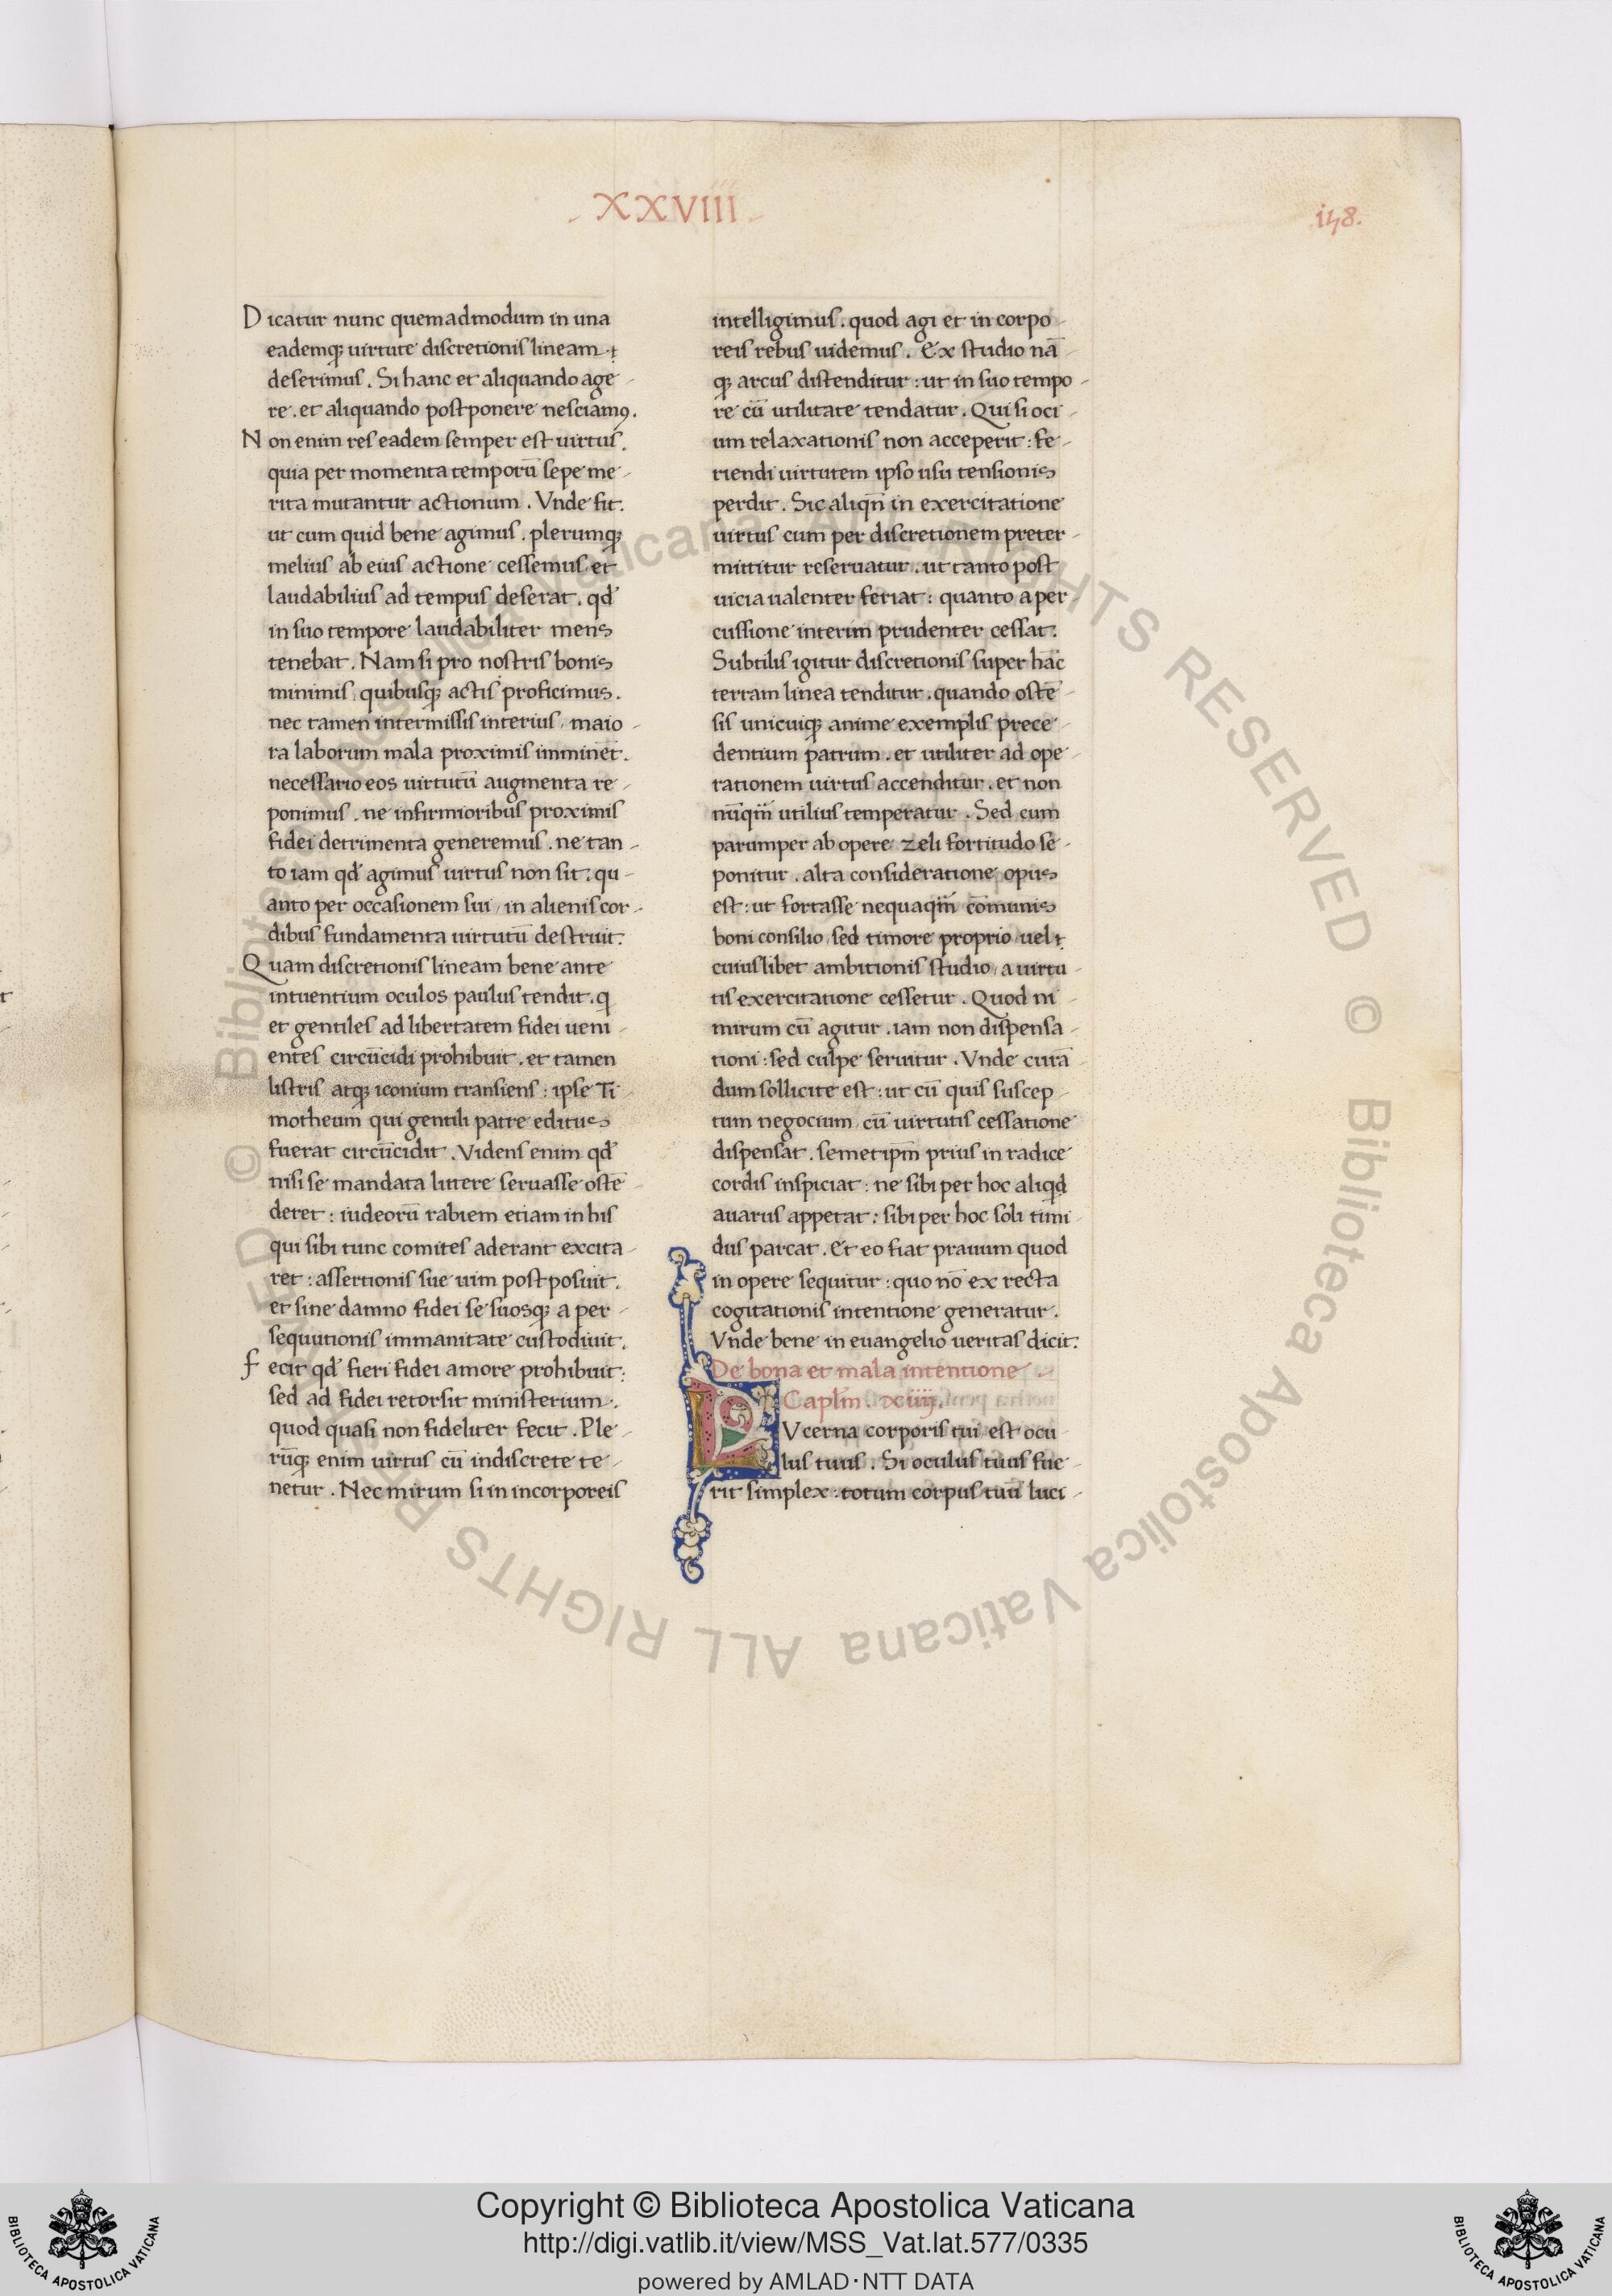 XXVIII
i48.
Dicatur nunc quemadmodum in una
eademq; uirtute discretionis lineam
deserimus. Si hanc et aliquando age-
re. et aliquando postponere nesciam9.
Non enim res eadem semper est uirtus.
quia per momenta temporū sepe me-
rita mutantur actionum. Vnde fit.
ut cum quid bene agimus. plerumq;
melius ab eius actione cessemus et
laudabilius ad tempus deserat. qd̄
in suo tempore laudabiliter mens
tenebat. Nam si pro nostris bonis
minimis, quibusq; actis proficimus.
nec tamen intermissis interius, maio-
ra laborum mala proximis imminēt.
necessario eos uirtutū augmenta re-
ponimus. ne infirmioribus proximis
fidei detrimenta generemus. ne tan-
to iam qd̄ agimus uirtus non sit: qu-
anto per occasionem sui, in alienis cor-
dibus fundamenta uirtutū destruit.
Quam discretionis lineam bene ante
intuentium oculos paulus tendit. q
et gentiles ad libertatem fidei ueni-
entes circūcidi prohibuit. et tamen
listris atq; iconium transiens: ipse Ti-
motheum qui gentili patre editus
fuerat circūcidit. Videns enim qd̄
nisi se mandata littere seruasse ostē-
deret: iudeorū rabiem etiam in his
qui sibi tunc comites aderant excita-
ret: assertionis sue uim postposuit.
et sine damno fidei se suosq; a per-
sequutionis immanitate custodiuit.
fecit qd̄ fieri fidei amore prohibuit:
sed ad fidei retorsit ministerium.
quod quasi non fideliter fecit. Ple-
rūq; enim uirtus cū indiscrete te-
netur. Nec mirum si in incorporeis
intelligimus. quod agi et in corpo-
reis rebus uidemus. Ex studio nā-
q; arcus distenditur: ut in suo tempo-
re cū utilitate tendatur. Qui si oci-
um relaxationis non acceperit: fe-
riendi uirtutem ipso usu tensionis
perdit. Sic aliqn̄ in exercitatione
uirtus cum per discretionem preter-
mittitur reseruatur. ut tanto post
uicia ualenter feriat: quanto a per-
cussione interim prudenter cessat.
Subtilis igitur discretionis super hāc
terram linea tenditur. quando ostē-
sis unicuiq; anime exemplis prece-
dentium patrum. et utiliter ad ope-
rationem uirtus accenditur. et non
nūqm̄ utilius temperatur. Sed cum
parumper ab opere zeli fortitudo se-
ponitur. alta consideratione opus
est: ut fortasse nequaqm̄ cōmunis
boni consilio, sed timore proprio, uel
cuiuslibet ambitionis studio, a uirtu-
tis exercitatione cessetur. Quod ni-
mirum cū agitur. iam non dispensa-
tioni: sed culpe seruitur. Vnde curā-
dum sollicite est: ut cū quis suscep-
tum negocium, cū uirtutis cessatione
dispensat. semet ipm̄ prius in radice
cordis inspiciat: ne sibi per hoc aliqd
auarus appetat: sibi per hoc soli timi-
dus parcat. Et eo fiat prauum quod
in opere sequitur: quo nō ex recta
cogitationis intentione generatur.
Vnde bene in euangelio ueritas dicit.
De bona et mala intentione.
Caplm̄. xiiij.
LVcerna corporis tui, est ocu-
lus tuus. Si oculus tuus fue-
rit simplex: totum corpus tuū luci-
© Biblioteca Apostolica Vaticana ALL RIGHTS RESERVED © Biblioteca Apostolica Vaticana ALL RIGHTS RESERVED
Copyright © Biblioteca Apostolica Vaticana
http://digi.vatlib.it/view/MSS_Vat.lat.577/0335
powered by AMLAD·NTT DATA
BIBLIOTECA APOSTOLICA VATICANA
BIBLIOTECA APOSTOLICA VATICANA